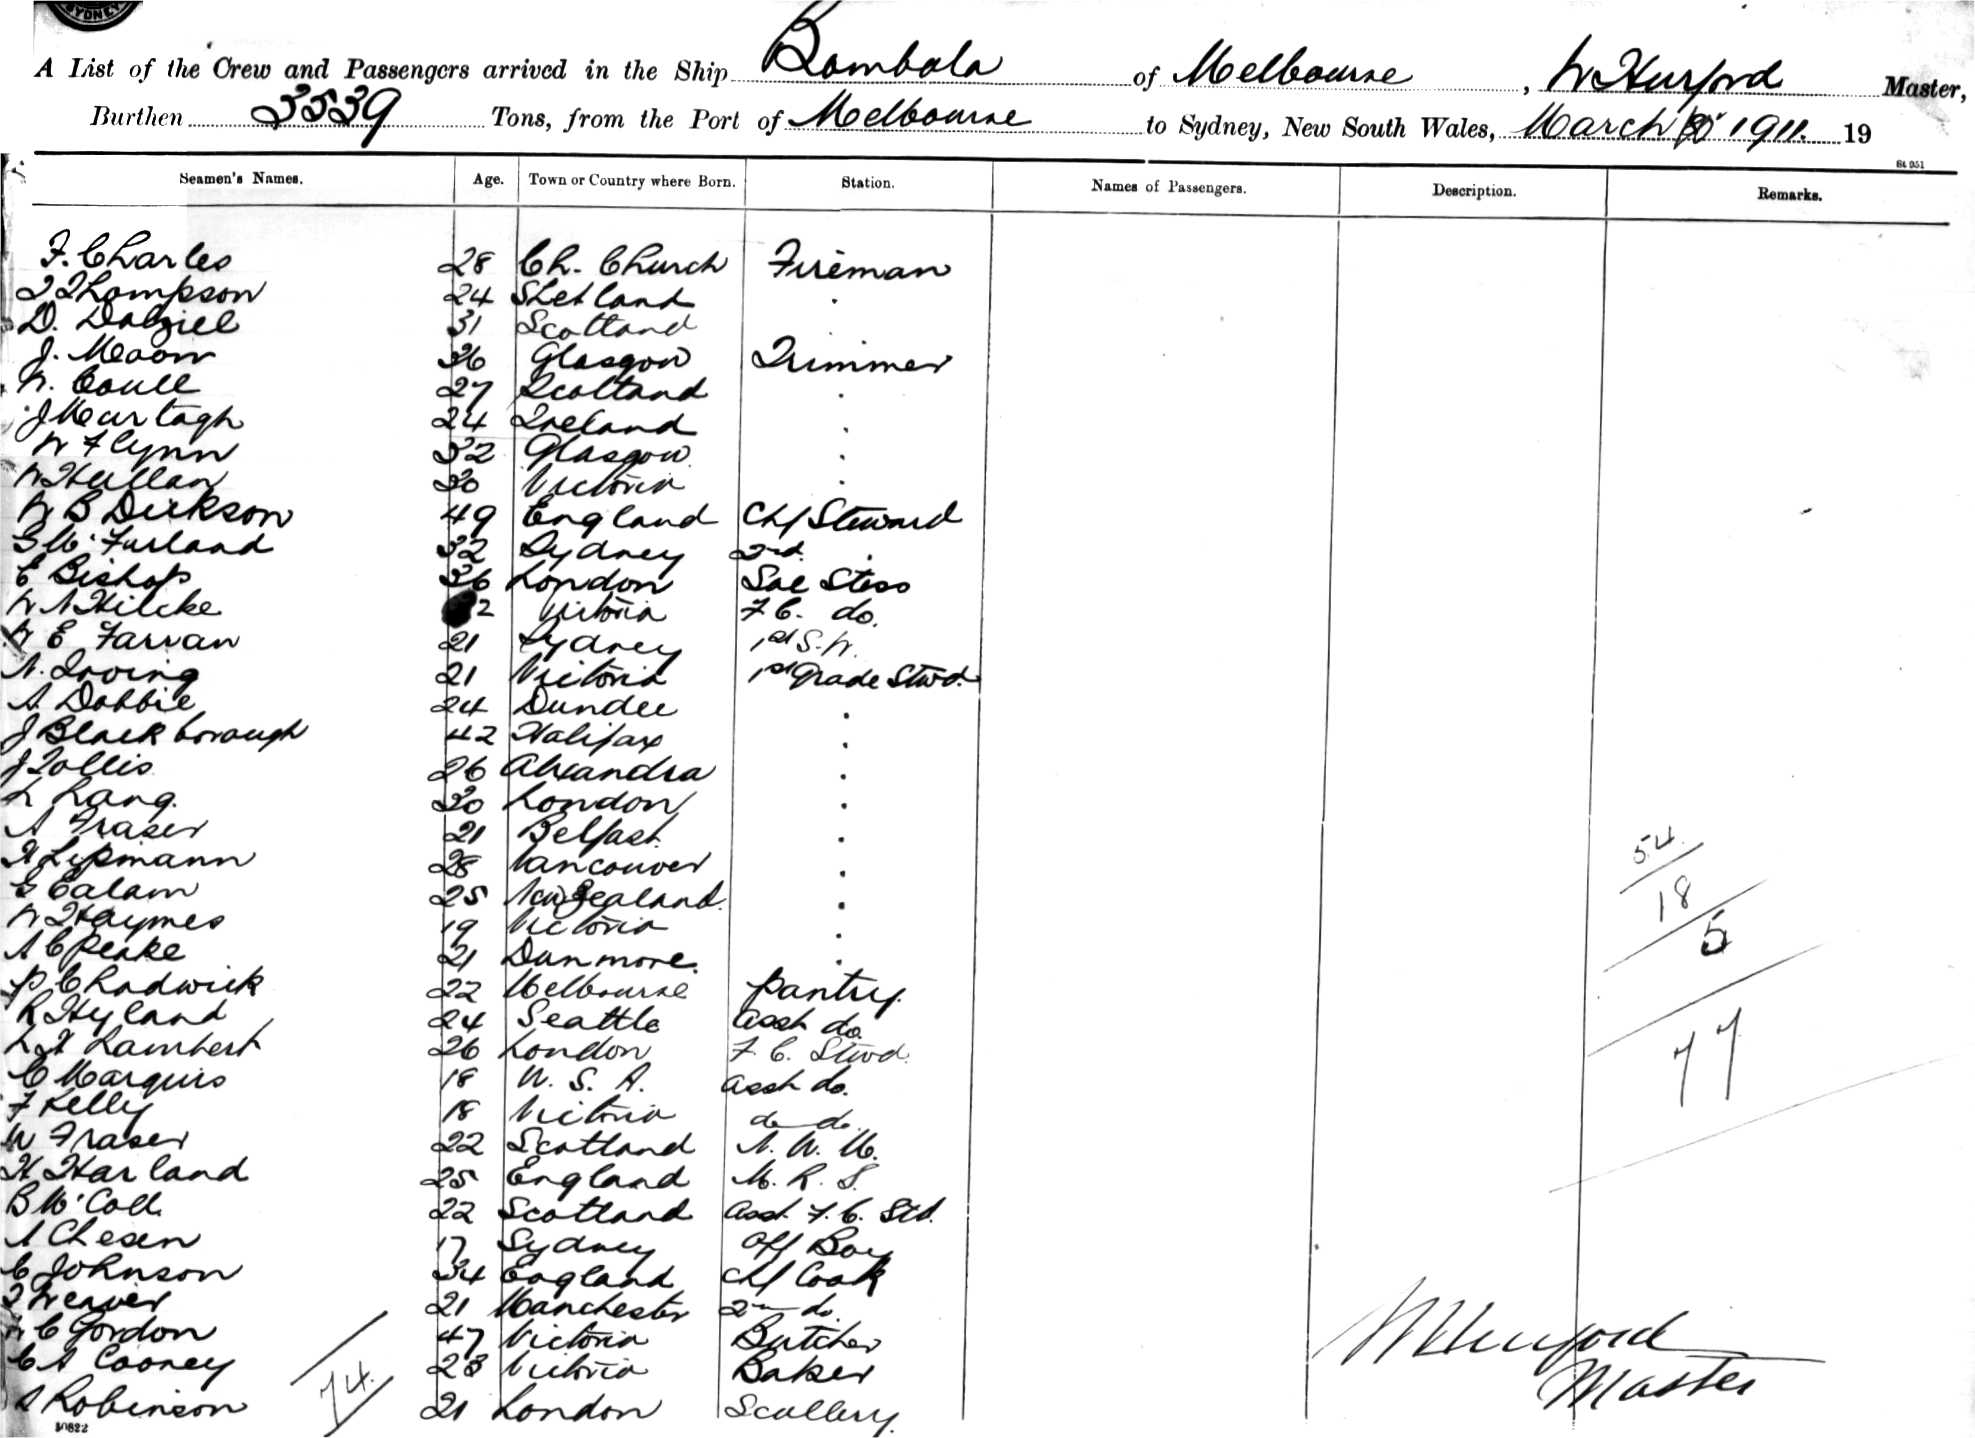 SYDNEY
A List of the Crew and Passengers arrived in the Ship Bombala of Melbourne, W Hurford Master,
Burthen 3539 Tons, from the Port of Melbourne to Sydney, New South Wales, March 1911. 19
St 051
Seamen's Names. Age. Town or Country where Born. Station. Names of Passengers. Description. Remarks.
F. Charles 28 Ch. Church Fireman
T Thompson 24 Shetland "
D. Dalziel 31 Scotland "
J. Moon 36 Glasgow Trimmer
W. Coull 27 Scotland "
J Murtagh 24 Ireland "
W Flynn 32 Glasgow "
W Hullan 30 Victoria "
W B Dickson 49 England Chf Steward
G McFurland 32 Sydney 2nd "
E Bishop 36 London Sal Stess
W A Hilcke 2 Victoria F. C. do.
W E Farran 21 Sydney 1st S. W.
A. Irving 21 Victoria 1st Grade Stwd.
A. Dobbie 24 Dundee "
J Blackborough 42 Halifax "
J Tollis 26 Alexandra "
L Lang. 30 London "
A Fraser 21 Belfast "
H Lipmann 28 Vancouver "
G Calam 25 New Zealand "
W Haymes 19 Victoria "
A C Peake 21 Dunmore. "
P Chadwick 22 Melbourne Pantry.
R Hyland 24 Seattle Asst do.
L H Lambert 26 London F. C. Stwd.
C Marquis 18 U. S. A. Asst do.
F Kelly 18 Victoria do do.
W Fraser 22 Scotland N. W. M.
H Harland 25 England M. R. S.
B McColl 22 Scotland Asst. F. C. Std.
A Chesen 17 Sydney Off Boy
C Johnson 34 England Chf Cook
T Weaver 21 Manchester 2nd do.
W C Gordon 47 Victoria Butcher
C A Cooney 23 Victoria Baker
A Robinson 21 London Scullery.
74.
54.
18
5
77
W Hurford
Master
30822